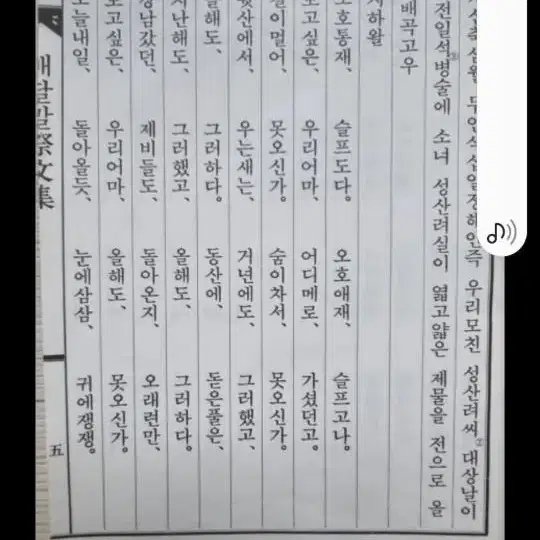 우리모친 성산려씨 대상날이
전일석 병술에 소녀 성산려실이 엷고얇은 제물을 전으로 올
배곡고우
하왈
오호통재, 슬프도다. 오호애재, 슬프고나.
보고싶은, 우리어마, 어디메로, 가셨던고.
길이멀어, 못오신가. 숨이차서, 못오신가.
뒷산에서, 우는새는, 거년에도, 그러했고,
올해도, 그러하다. 동산에, 돋은풀은,
지난해도, 그러했고, 올해도, 그러하다.
강남갔던, 제비들도, 돌아온지, 오래련만,
보고싶은, 우리어마, 올해도, 못오신가.
오늘내일, 돌아올듯, 눈에삼삼, 귀에쟁쟁.
배달말祭文集
五